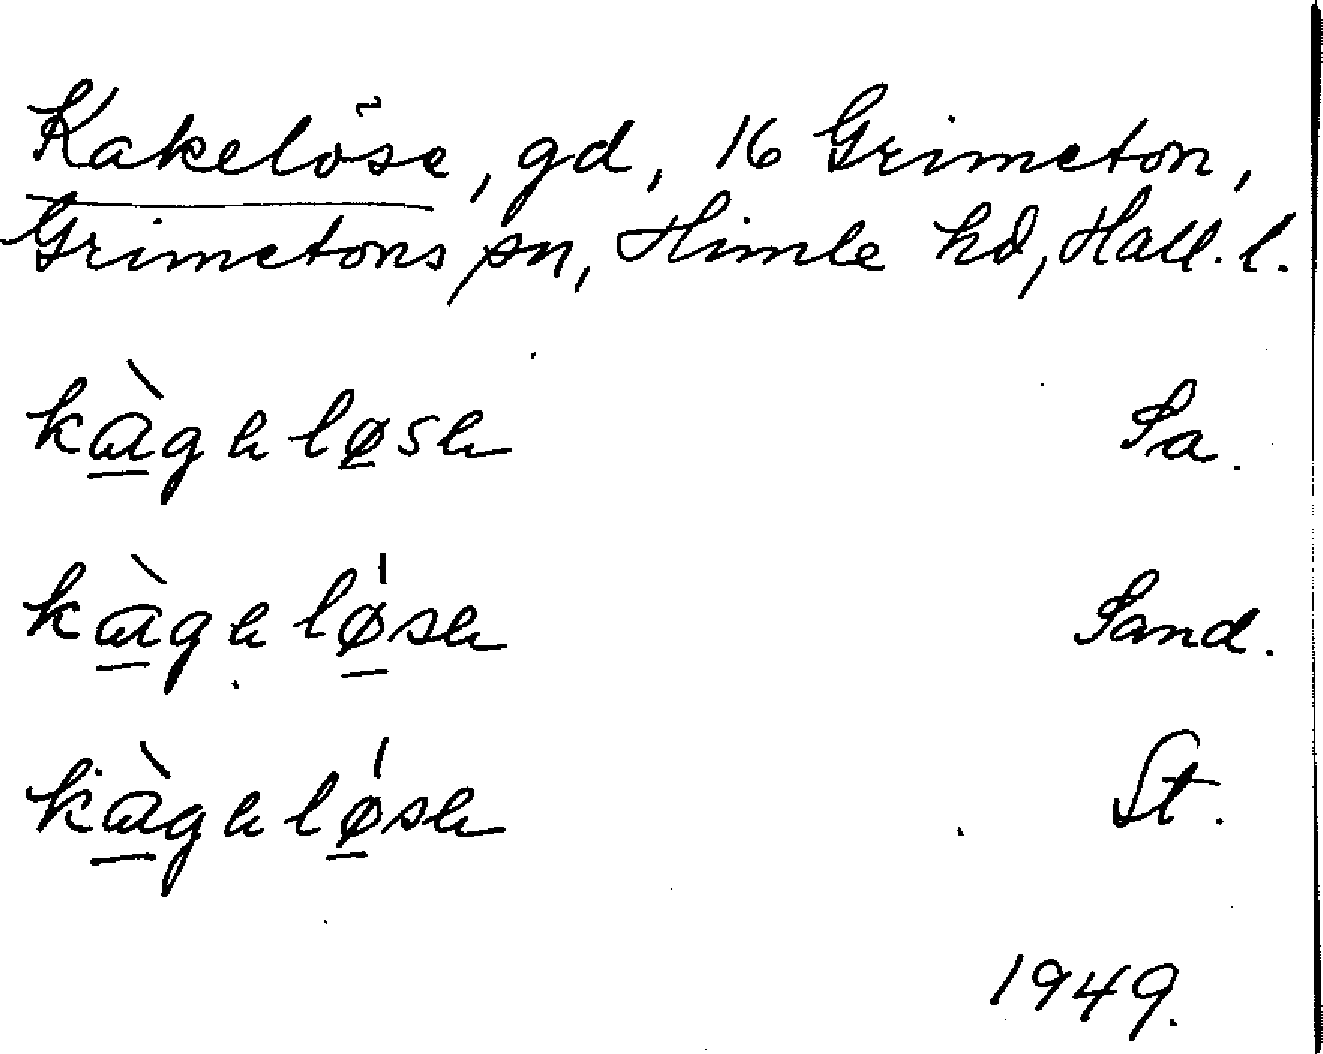 Kakelöse, gd, 16 Grimeton,
Grimetons sn, Himle hd, Hall. l.
kàgeløse Sa.
kàgelǿse Sand.
kàgelǿse St.
1949.